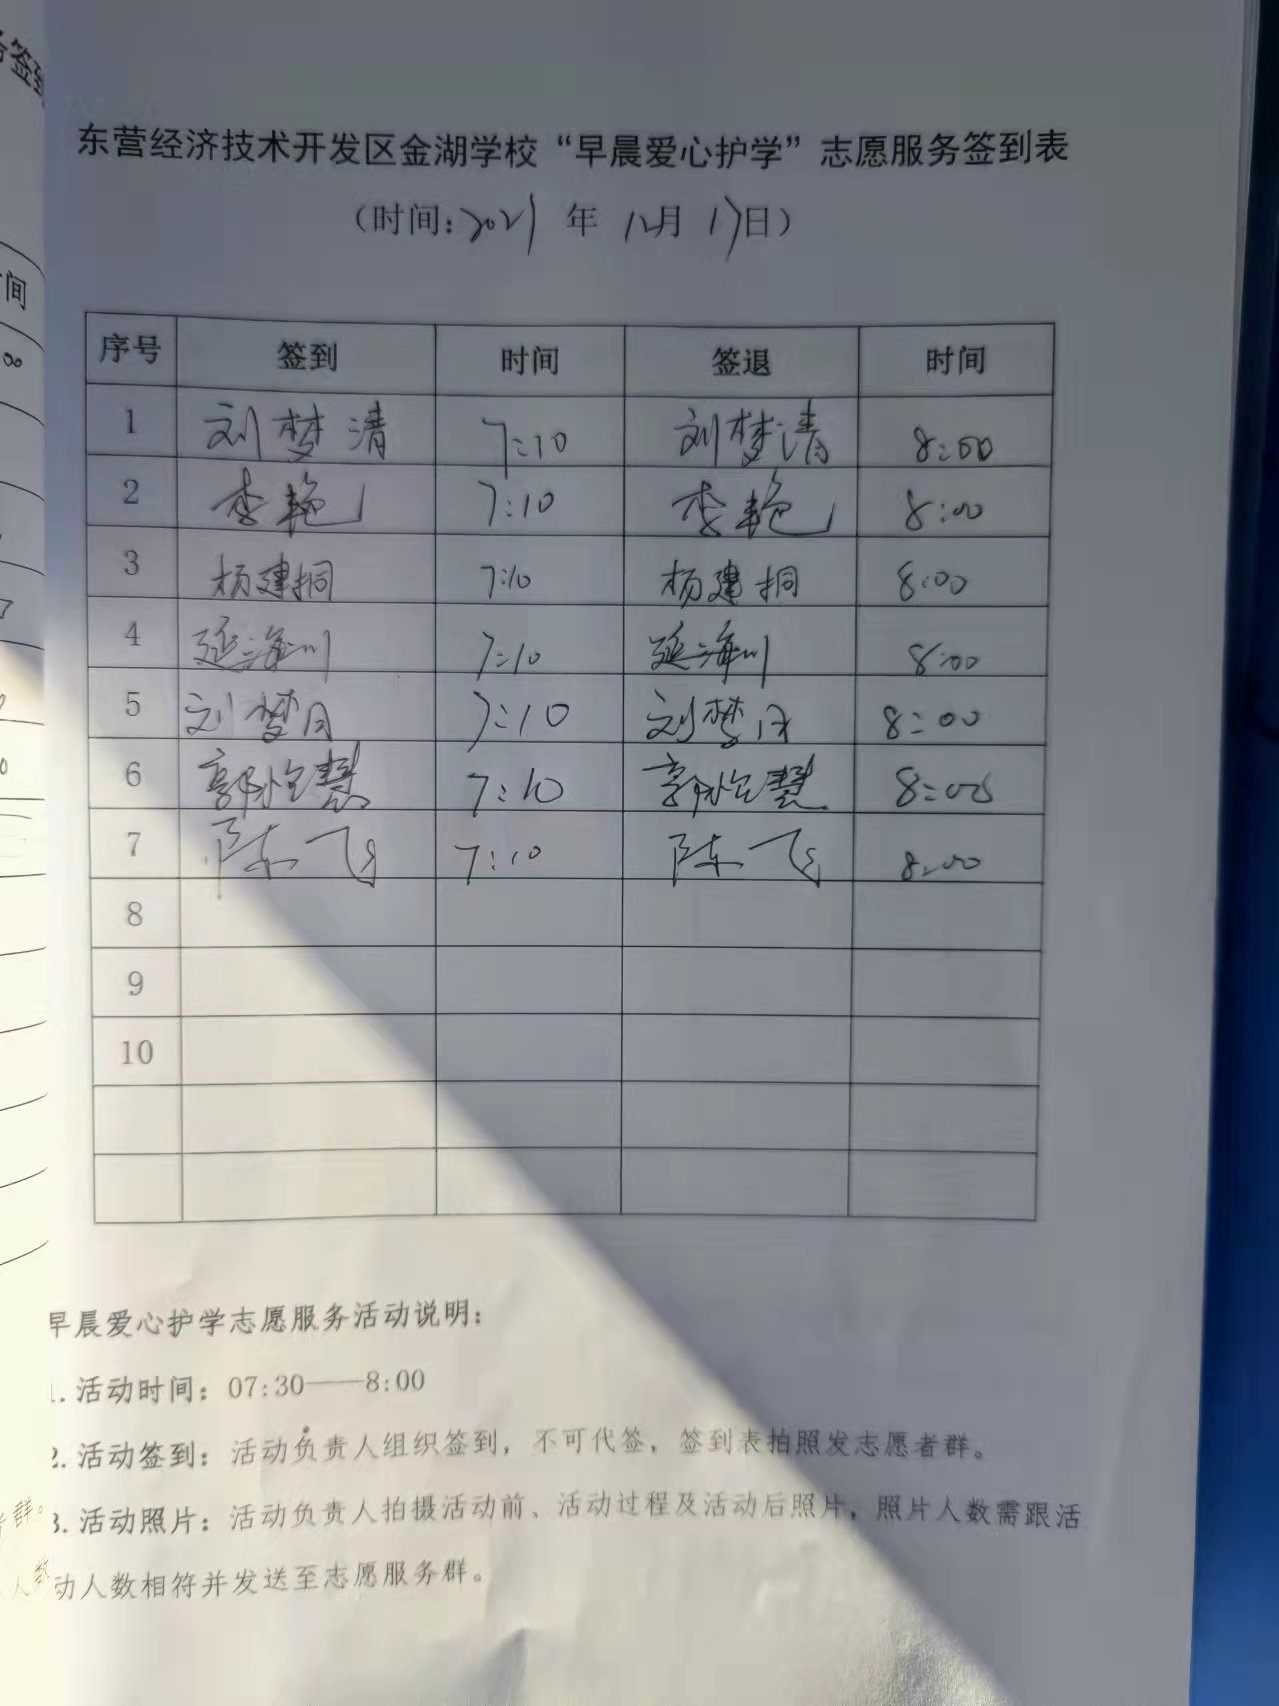 务签到
东营经济技术开发区金湖学校“早晨爱心护学”志愿服务签到表
（时间:2021年 12月 17日）
序号 签到 时间 签退 时间
1 刘梦清 7:10 刘梦清 8:00
2 李艳 7:10 李艳 8:00
3 杨建桐 7:10 杨建桐 8:00
4 延海川 7:10 延海川 8:00
5 刘梦月 7:10 刘梦月 8:00
6 郭怡慧 7:10 郭怡慧 8:00
7 陈飞 7:10 陈飞 8:00
8
9
10
早晨爱心护学志愿服务活动说明:
1. 活动时间: 07:30——8:00
2. 活动签到: 活动负责人组织签到，不可代签，签到表拍照发志愿者群。
3. 活动照片: 活动负责人拍摄活动前、活动过程及活动后照片，照片人数需跟活
动人数相符并发送至志愿服务群。
间
群。
人数